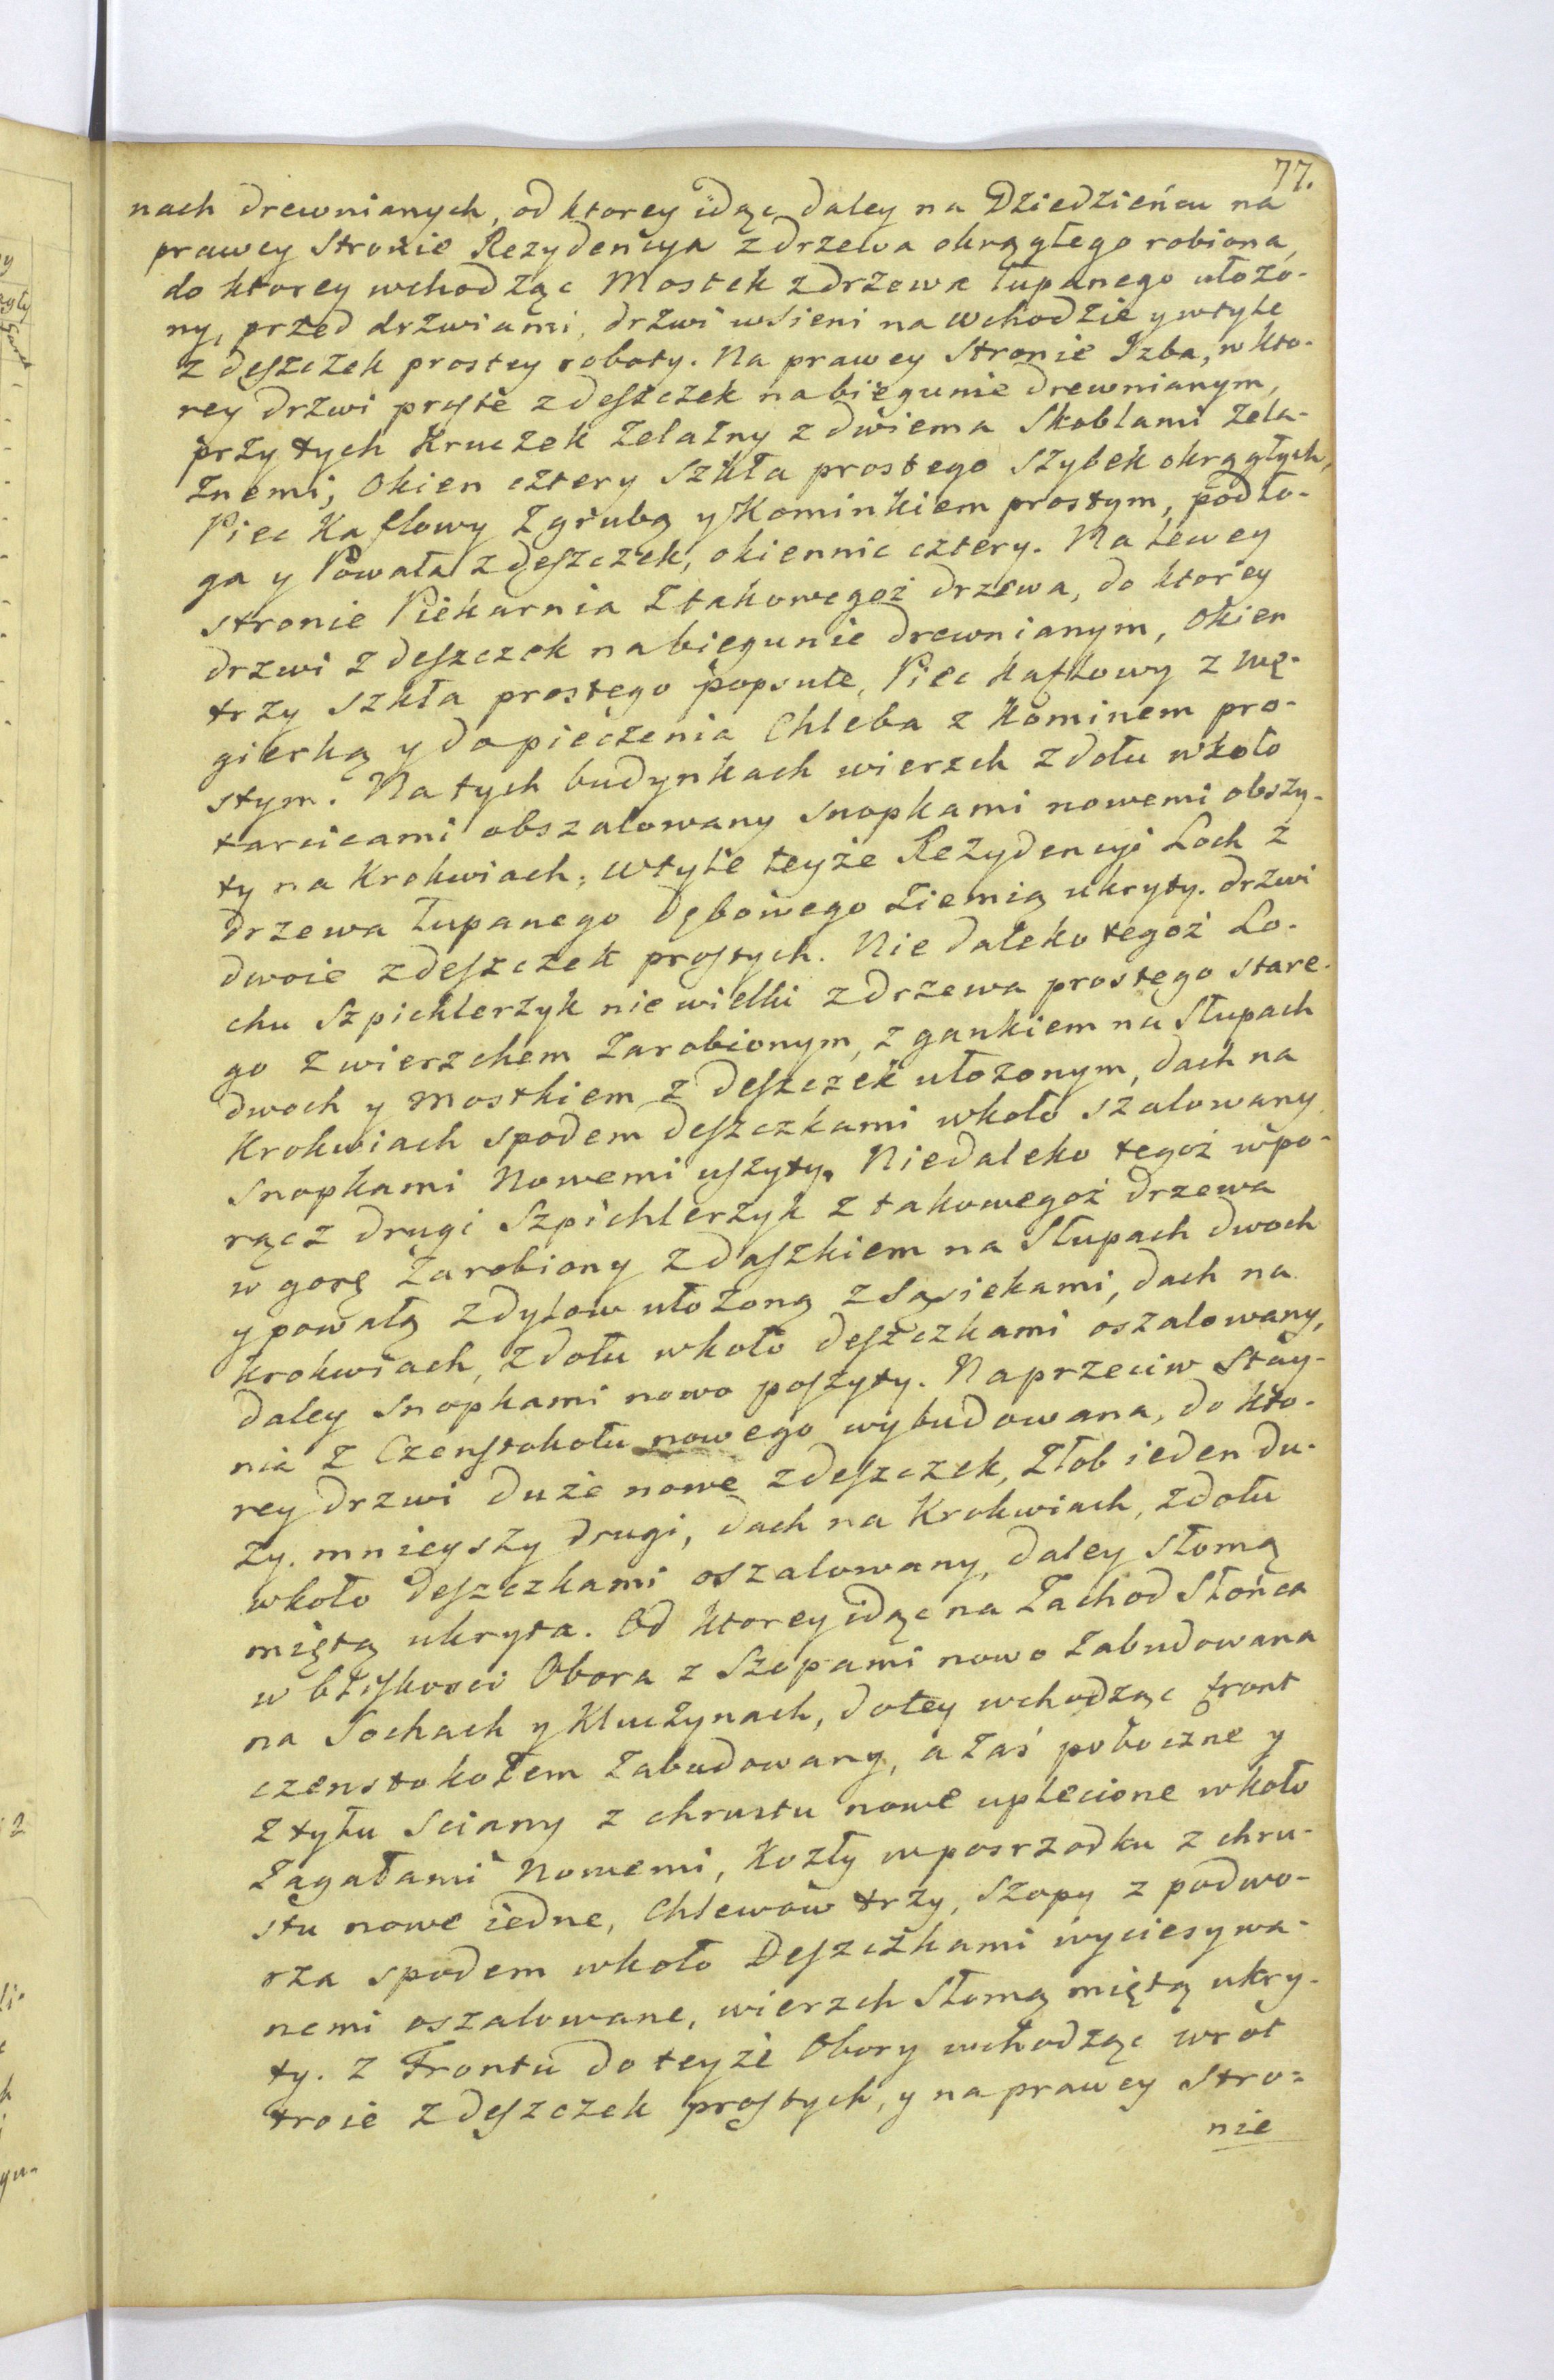 77.
nach drewnianych, od ktorey idąc daley na Dziedzieńcu na
prawey Stronie Rezydencya z drzewa okrągłego robiona,
do ktorey wchodząc Mostek z drzewa łupanego ułożo-
ny, przed drzwiami, drzwi w Sieni na wchodzie y wtyle
z deszczek prostey roboty. Na prawey Stronie Izba, w kto-
rey drzwi proste z deszczek na biegunie drewnianym,
przy tych Kruczek żelazny z dwiema Skoblami żela-
znemi, Okien cztery Szkła prostego Szybek okrągłych,
Piec Kaflowy z grubą y Kominkiem prostym, podło-
ga y Powała z deszczek, okiennic cztery. Na lewey
stronie Piekarnia z takowegoż drzewa, do ktorey
drzwi z deszczek na biegunie drewnianym, Okien
trzy Szkła prostego popsute, Piec kaflowy z wę-
gierką y do pieczenia Chleba z Kominem pro-
stym. Na tych budynkach wierzch z dołu wkoło
tarcicami obszalowany snopkami nowemi obszy-
ty na Krokwiach; wtyle teyże Rezydencyi Loch z
drzewa łupanego dębowego ziemią ukryty. drzwi
dwoie z deszczek prostych. Nie daleko tegoż Lo-
chu Szpichlerzyk nie wielki z drzewa prostego stare-
go z wierzchem zarobionym, z gankiem na Słupach
dwoch y mostkiem z deszczek ułożonym, dach na
Krokwiach spodem deszczkami wkoło szalowany
Snopkami Nowemi uszyty. Niedaleko tegoż wpo-
rącz drugi Szpichlerzyk z takowegoż drzewa
w gorę zarobiony z daszkiem na Słupach dwoch
y powałą z dylow ułożoną z Sąsiekami, dach na
krokwiach, z dołu wkoło deszczkami oszalowany,
daley Snopkami nowo poszyty. Naprzeciw Stay-
nia z Czenstokołu nowego wybudowana, do kto-
rey drzwi duże nowe z deszczek, żłob ieden du-
ży. mnieyszy drugi, dach na Krokwiach, z dołu
wkoło deszczkami oszalowany, daley słomą
miętą ukryta. Od ktorey idąc na Zachod Słońca
w bliskosci Obora z Szopami nowo zabudowana
na Sochach y Kluczynach, dotey wchodząc front
czenstokołem zabudowany, a zaś poboczne y
z tyłu sciany z chrustu nowe uplecione wkoło
Zagatami Nowemi, Kozły w posrzodku z chru-
stu nowe iedne, Chlewow trzy, Szopy z podwo-
rza spodem wkoło Deszczkami wyciesywa-
nemi oszalowane, wierzch Słomą miętą ukry-
ty. Z Frontu do teyże Obory wchodząc wrot
troie z deszczek prostych, y na prawey stro-
nie